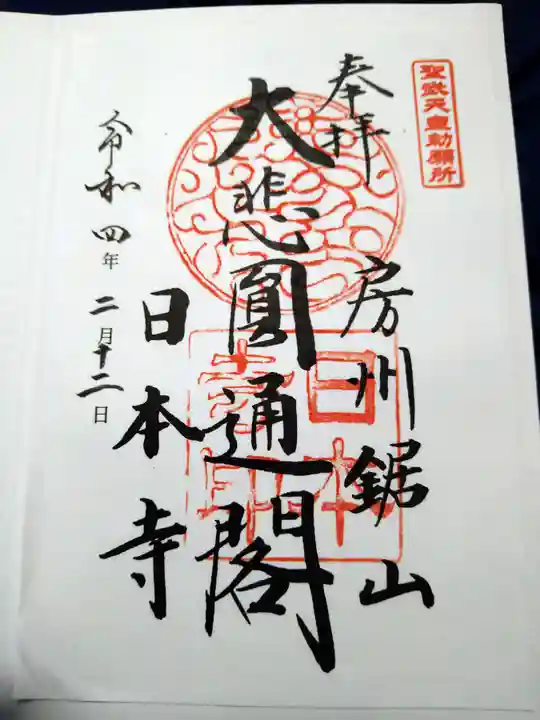 聖武天皇勅願所
奉拝
房州鋸山
大悲圓通閣
日本寺
令和四年二月十二日
日本寺印